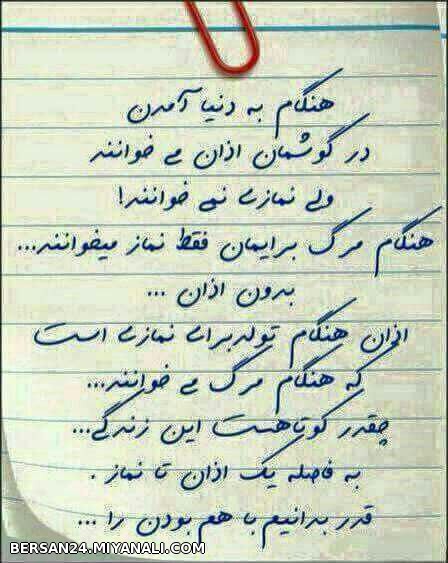 هنگام به دنیا آمدن
در گوشمان اذان می خوانند
ولی نمازی نمی خوانند!
هنگام مرگ برایمان فقط نماز میخوانند...
بدون اذان ...
اذان هنگام تولد برای نمازی است
که هنگام مرگ می خوانند...
چقدر کوتاهست این زندگی...
به فاصله یک اذان تا نماز .
قدر بدانیم با هم بودن را ...
BERSAN24.MIYANALI.COM